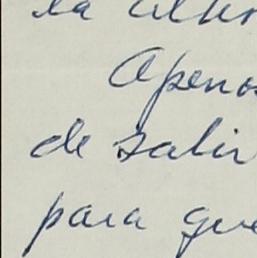 la
Apenas
de salir
para que